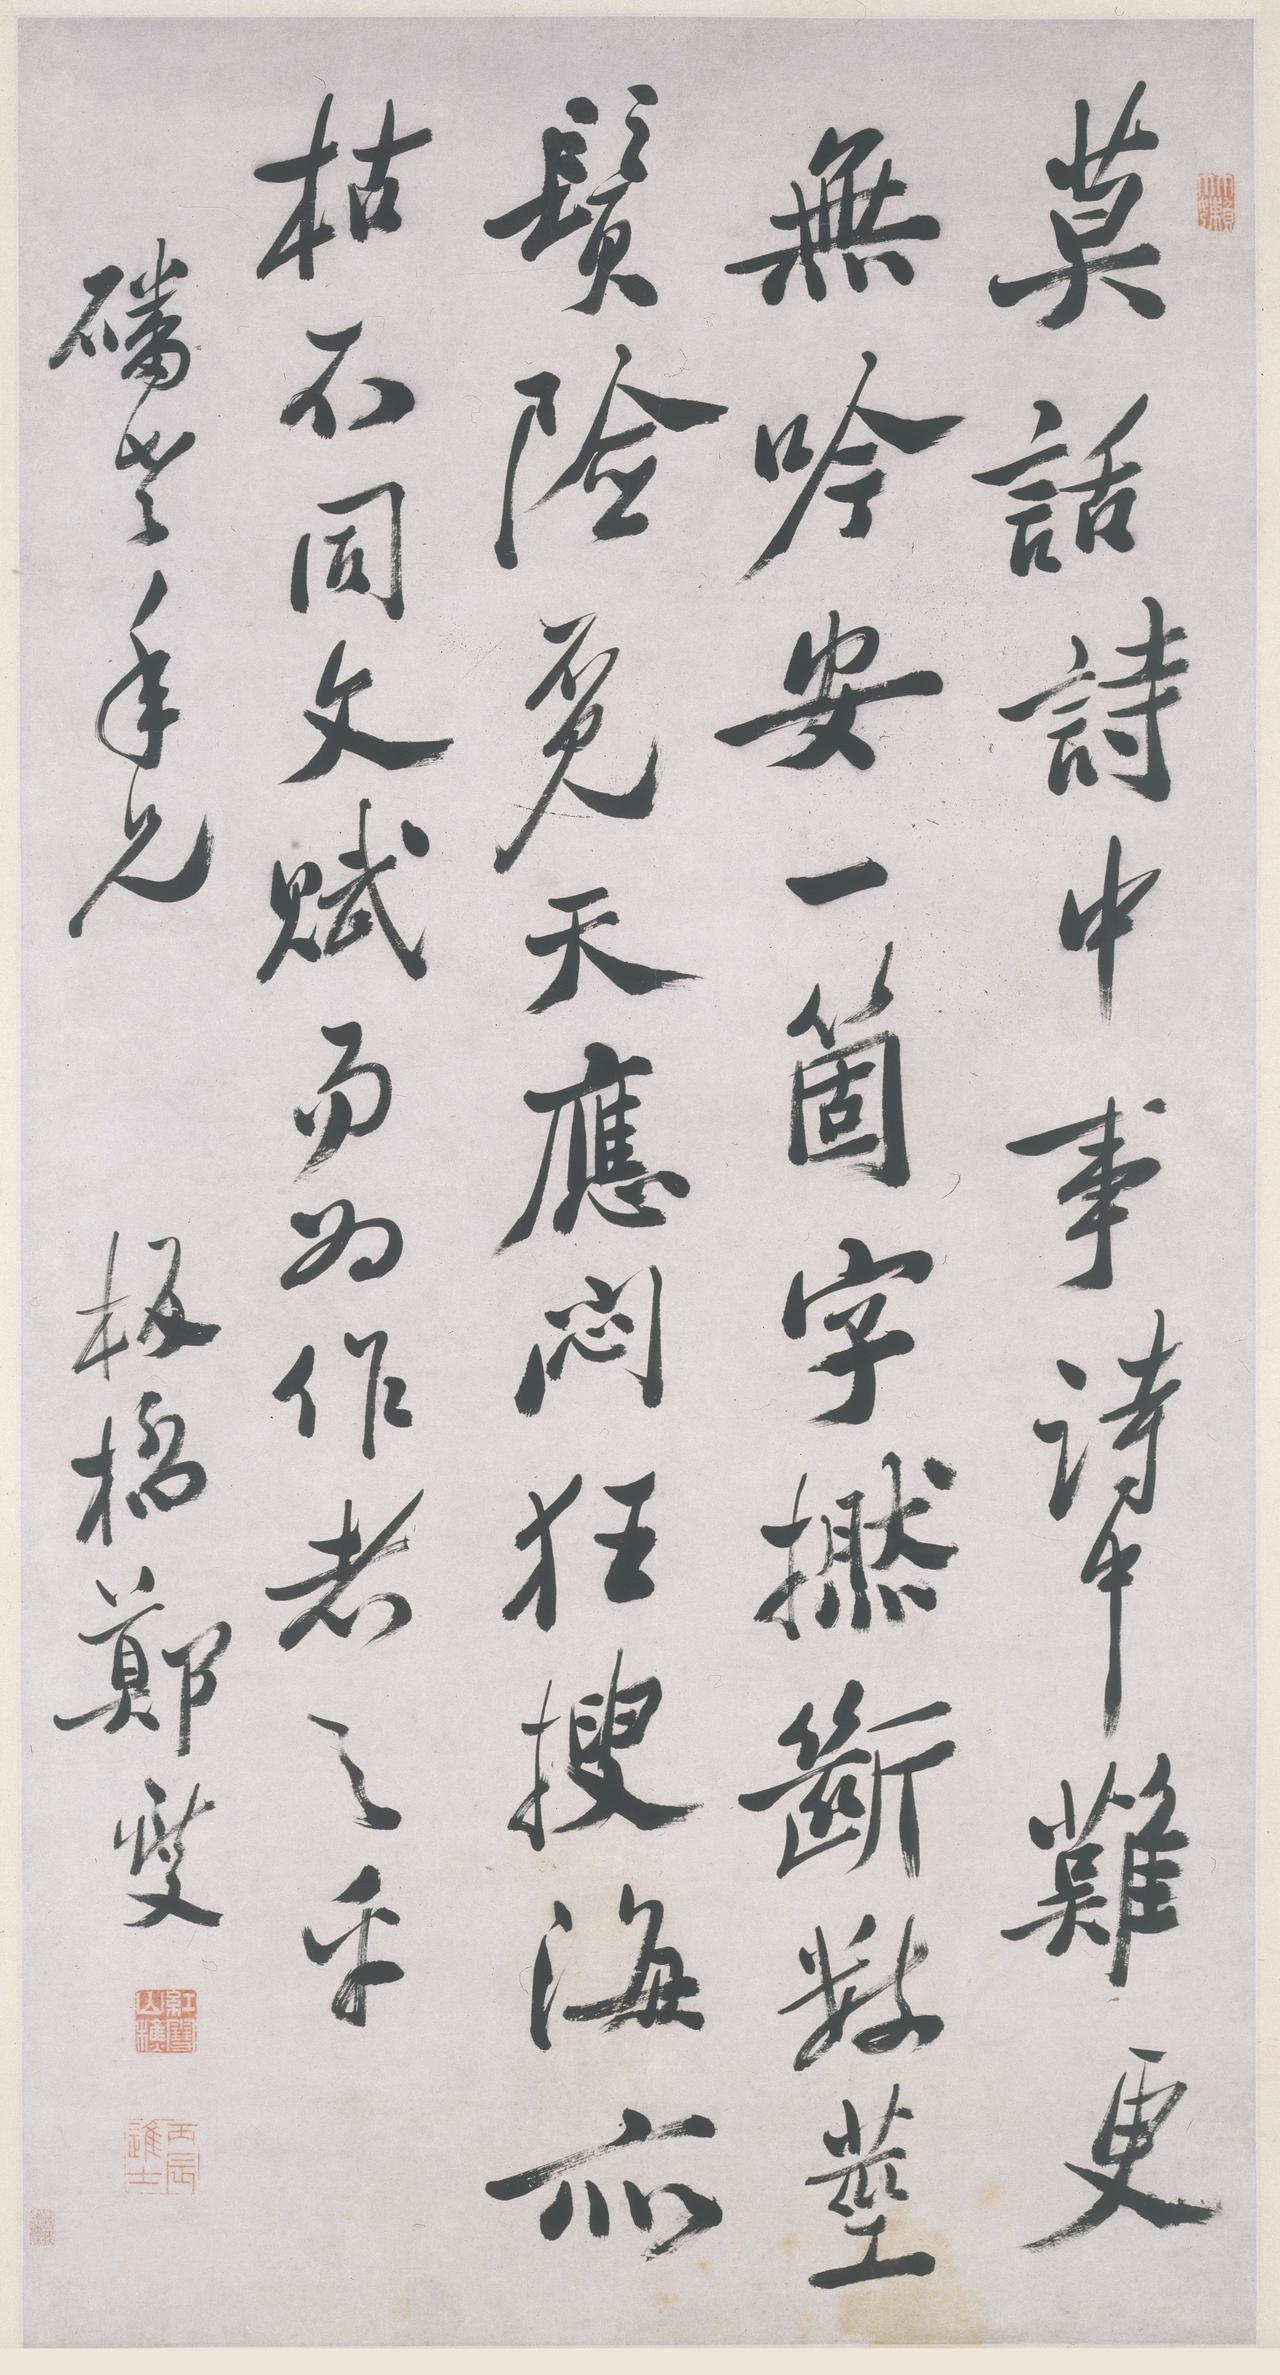 莫話詩中事詩中難更
無吟安一箇字撚斷數莖
鬚險覔天應悶狂搜海亦
枯不同文賦易為作者之乎
磻老年兄 板橋鄭燮
紅雪山樵
丙辰進士